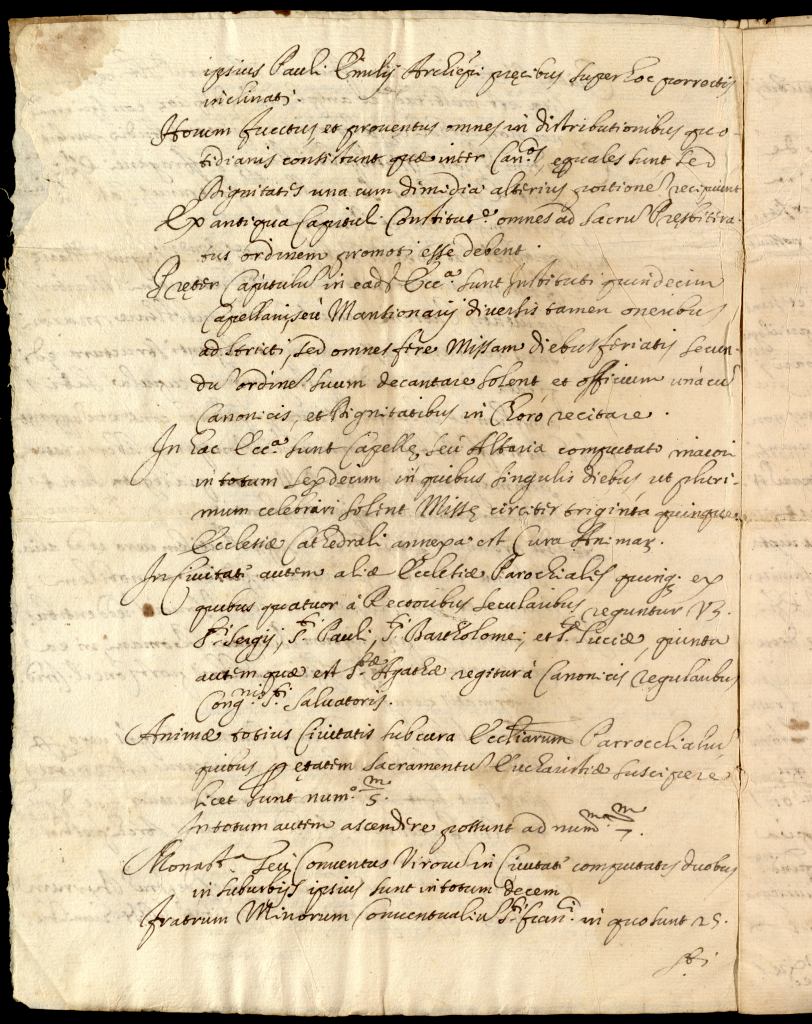 ipsius Pauli Emilij Archiepi pręcibus super hoc porrectis
inclinati.
Horum fructus et prouentus omnes in distributionibus quo-
tidianis consistunt quæ inter Can.os equales sunt sed
Dignitates una cum dimidia alterius portione recipiunt
Ex antiqua Capituli Constitut.e omnes ad sacrũ Pręsbitera-
tus ordinem promoti esse debent.
Pręter Capitulũ in eadẽ Ecc.a sunt Instituti quindecim
Capellani, seù Mansionarij diuersis tamen oneribus
adstricti, sed omnes fere Missam diebus feriatis secun-
dũ ordinẽ suum decantare solent et officium unà cũ
Canonicis, et Dignitatibus in Choro recitare.
In hac Ecc.a sunt Capellę, seù Altaria computato maiori
in totum sexdecim in quibus singulis diebus ut pluri-
mum celebrari solent Missę circiter triginta quinque.
Ecclesiæ Cathedrali annexa est Cura Animar.
In Ciuitate autem aliæ Ecclesiæ Parochiales quinq. ex
quibus quatuor à Rectoribus secularibus reguntur Vz.
S.ti Sergij, S.ti Pauli, S.ti Bartholomei, et S.tæ Luciæ, quinta
autem quæ est S.tæ Agathæ regitur à Canonicis regularibus
Cong.nis S.ti Saluatoris.
Animæ totius Ciuitatis sub cura Eccliarum Parrocchialiũ
quibus p ętatem Sacramentũ Eucharistiæ suscipere
licet sunt num.o m/5.
In totum autem ascendere possunt ad num.m m/7.
Monast.a seù Conuentus Virorũ in Ciuitate computatis duobus
in suburbijs ipsius sunt in totum decem
Fratrum Minorum Conuentualiũ S.ti Fran.ci in quo sunt 25.
S.ti